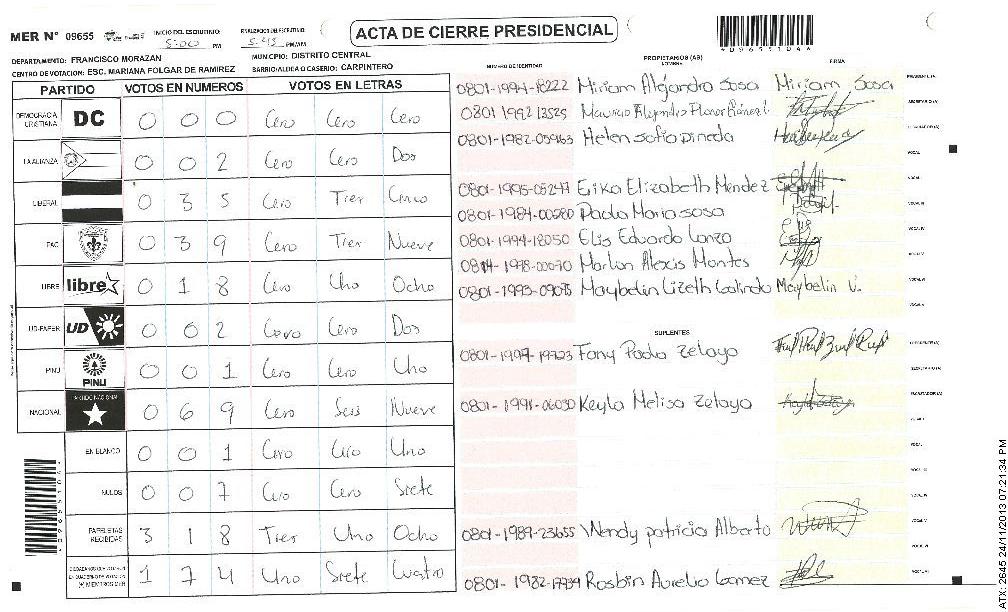 MER N° 09655 INICIO DEL ESCRUTINIO: 5:00 PM FINALIZACION DEL ESCRUTINIO: 5:45 PM/AM
ACTA DE CIERRE PRESIDENCIAL
*09655104*
DEPARTAMENTO: FRANCISCO MORAZAN MUNICPIO: DISTRITO CENTRAL
CENTRO DE VOTACION: ESC. MARIANA FOLGAR DE RAMIREZ BARRIO/ALDEA O CASERIO: CARPINTERO
NÚMERO DE IDENTIDAD PROPIETARIOS (AS) NOMBRE FIRMA
PARTIDO VOTOS EN NUMEROS VOTOS EN LETRAS
DEMOCRACIA CRISTIANA DC 0 0 0 Cero Cero Cero
LA ALIANZA 0 0 2 Cero Cero Dos
LIBERAL 0 3 5 Cero Tres Cinco
PAC 0 3 9 Cero Tres Nueve
LIBRE libre 0 1 8 Cero Uno Ocho
UD-FAPER UD 0 0 2 Cero Cero Dos
PINU PINU 0 0 1 Cero Cero Uno
NACIONAL PARTIDO NACIONAL 0 6 9 Cero Seis Nueve
EN BLANCO 0 0 1 Cero Cero Uno
NULOS 0 0 7 Cero Cero Siete
PAPELETAS RECIBIDAS 3 1 8 Tres Uno Ocho
1 7 4 Uno Siete Cuatro
0801-1994-18222 Miriam Alejandra Sosa Miriam Sosa
0801 1992 13525 Mauricio Alejandro
0801-1982-05963 Helen Sofia Pineda
0801-1995-05247 Erika Elizabeth Mendez
0801-1984-00280 Paola Maria Sosa
0801-1994-18050 Elis Eduardo
Marlon Alexis Montes
Maybelin Lizeth Galindo Maybelin
SUPLENTES
Fany Paola Zelaya
Keyla Melisa Zelaya
0801-1989-23655 Wendy Patricia Alberto
Rosbin Aurelio Gomez
ATX 2645 24/11/2013 07:21:34 PM